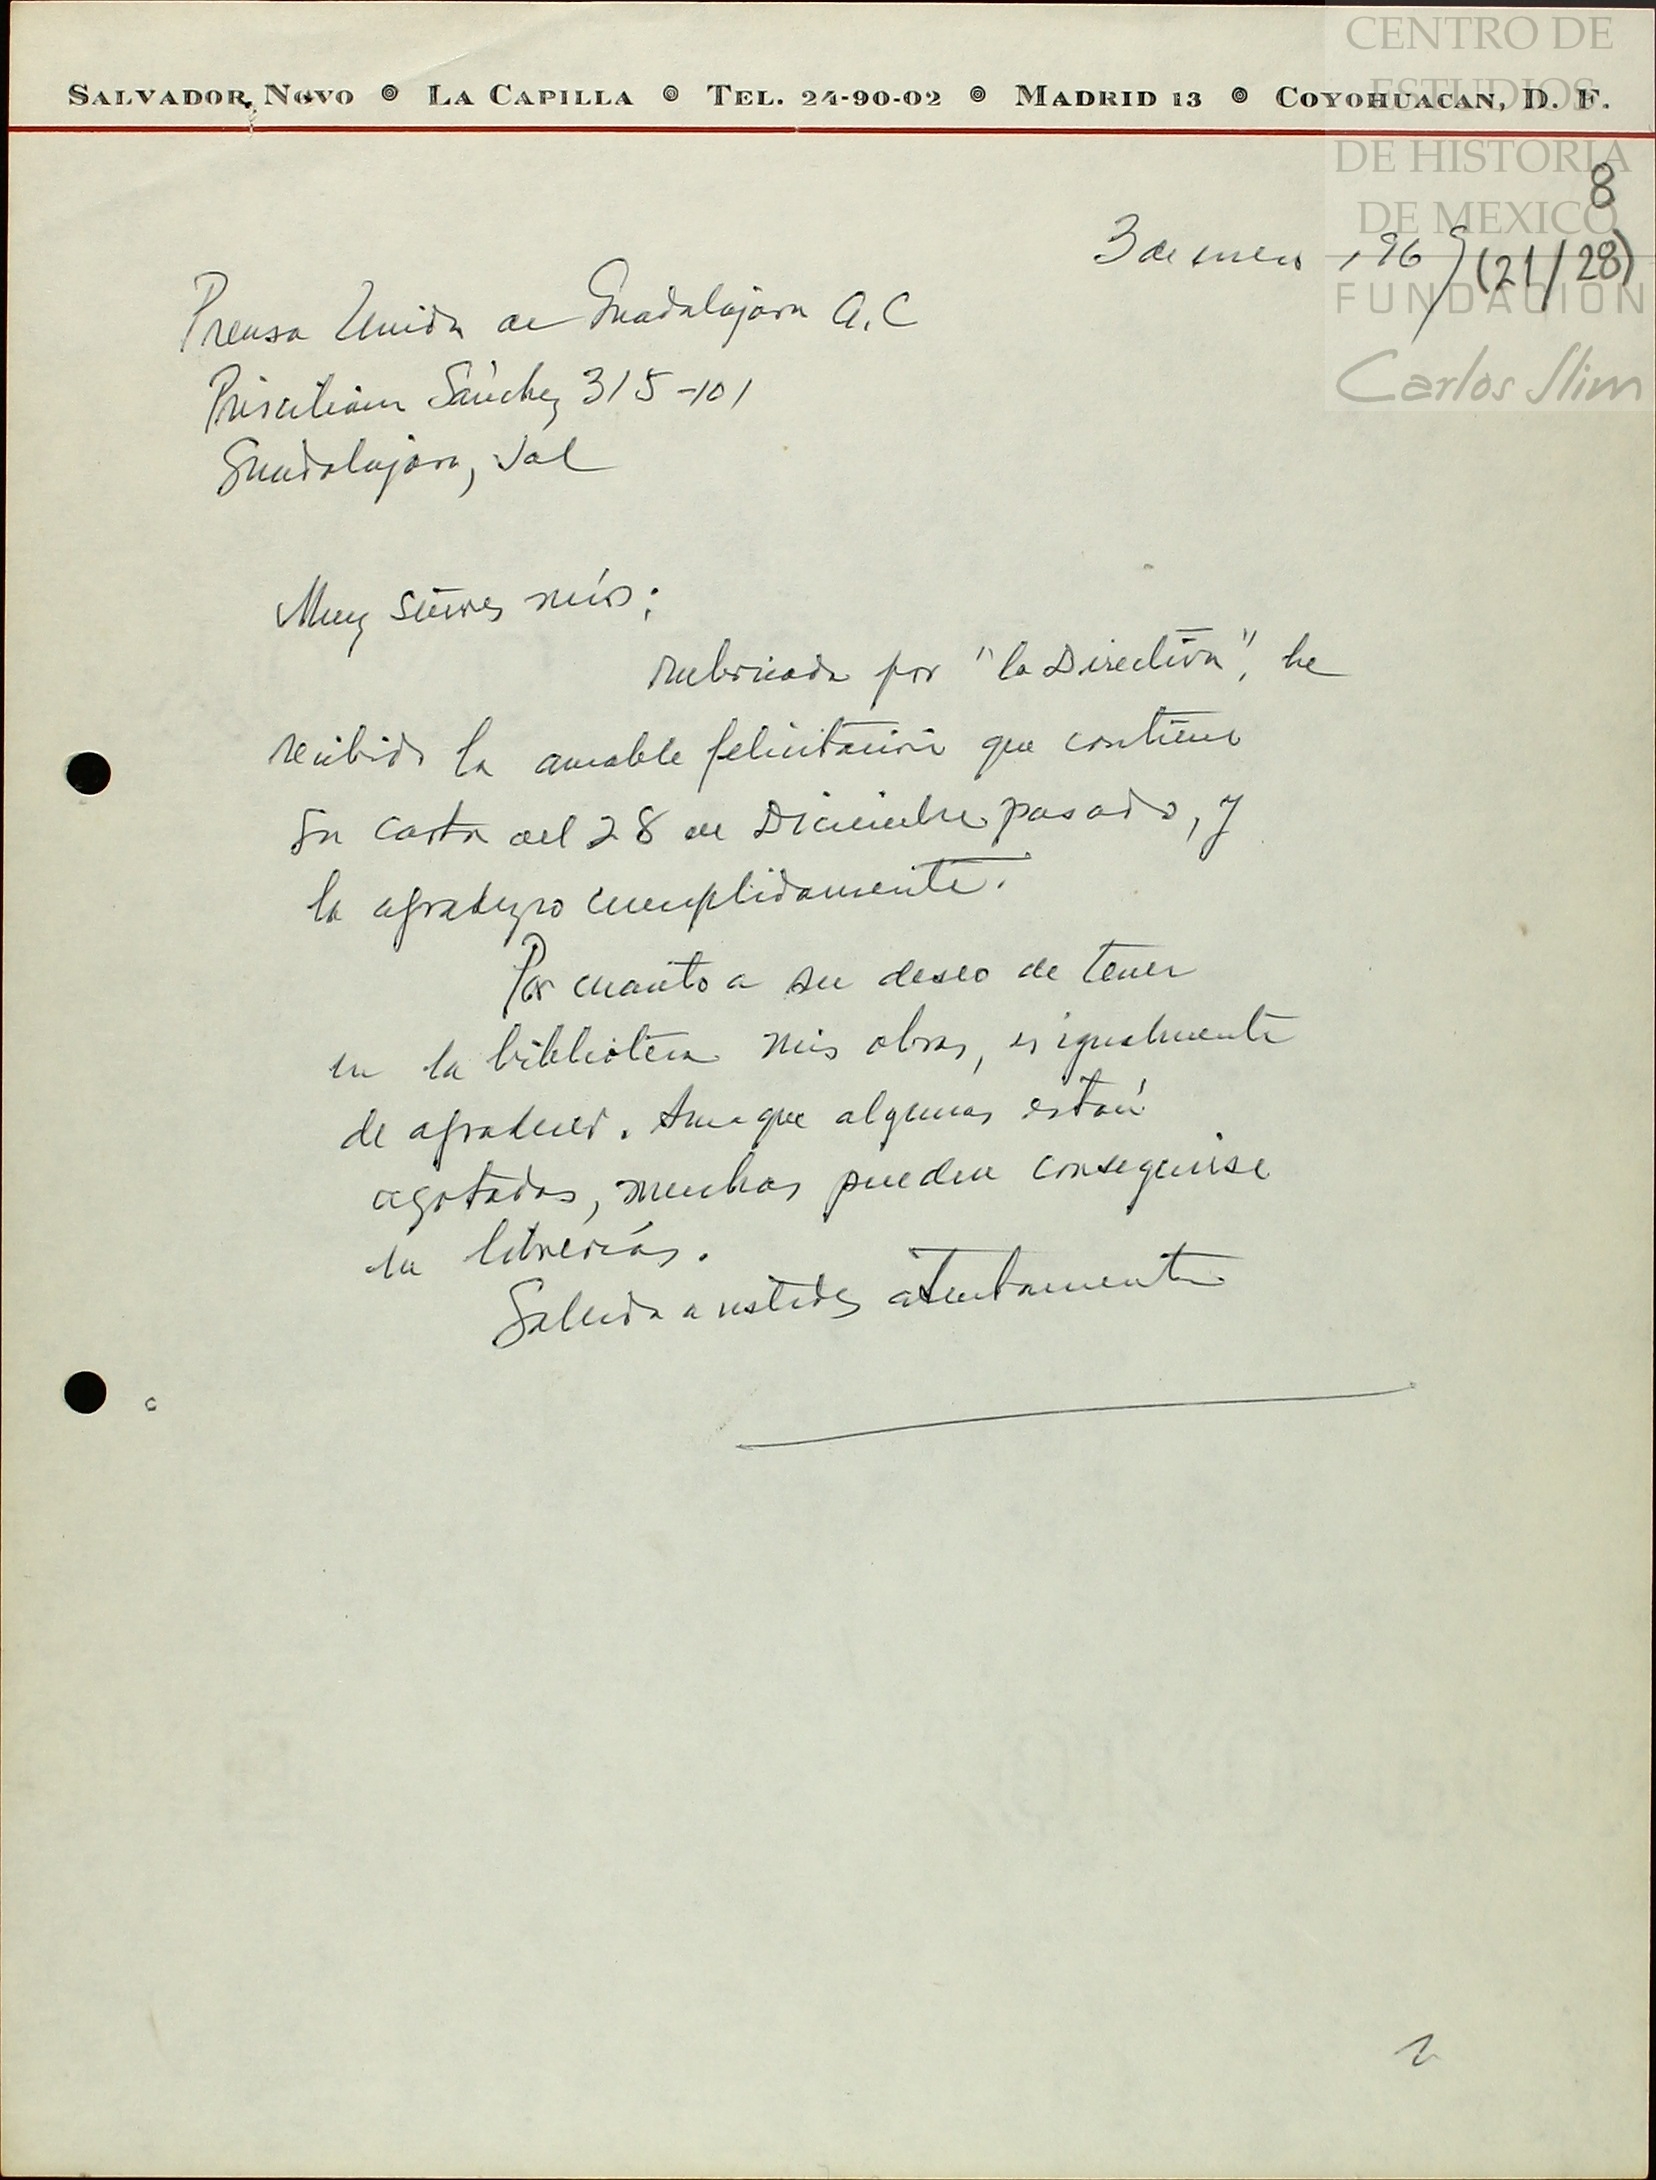 CENTRO DE
ESTUDIOS
DE HISTORIA
DE MEXICO
FUNDACION
Carlos Slim
SALVADOR NOVO ⊚ LA CAPILLA ⊚ TEL. 24-90-02 ⊚ MADRID 13 ⊚ COYOHUACAN, D. F.
8
3 de enero 1969 (21/28)
Prensa Unida de Guadalajara A.C
Prisciliano Sánchez 315-101
Guadalajara, Jal
Muy señores míos:
rubricada por "la Directiva", he
recibido la amable felicitación que contiene
su carta del 28 de Diciembre pasado, y
la agradezco cumplidamente.
Por cuanto a su deseo de tener
en la biblioteca mis obras, es igualmente
de agradecer. Aunque algunas están
agotadas, muchas pueden conseguirse
en librerías.
Saluda a ustedes atentamente